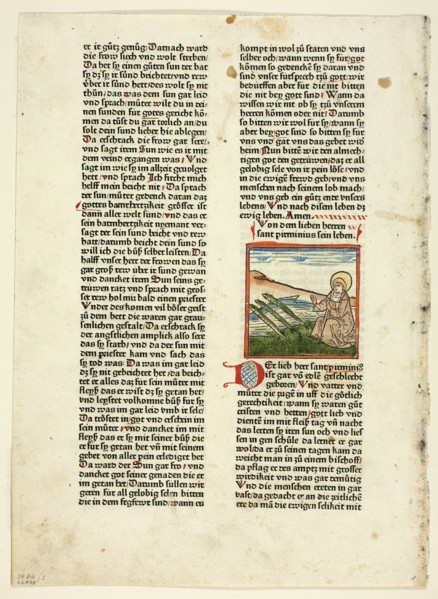 er ir gůtz genůg/ Darnach ward
die frow siech vnd wolt sterben/
Da het sy einen gůten sun der bat
sy dz sy ir sünd beichtet/ vnd rew
vber ir sünd hett/ des wolt sy nit
thůn/ das was dem sun gar leid
vnd sprach/ můter wilt du in dei-
nen sunden fur gottes gericht kö-
men da tůst du gar törlich an/ du
solt dein sünd lieber hie ablegen/
Da erschrack die frow gar seer/
vnd sagt irem Sun wie es ir mit
dem veind ergangen was/ Vnd
sagt im wie sy im alzeit geuolget
hett/ vnd sprach Jch fürcht mich
helff mein beicht nit/ Da sprach
der sun/ můter gedenck daran daz
gottes barmhertzikeit grösser ist
dann aller welt sünd/ vnd das er
sein barmhertzikeit nyemant ver-
sagt der sein sünd beicht vnd rew
hatt/ darumb beicht dein sünd so
will ich die bůß selber leisten/ Da
halff vnser herr der frowen das sy
gar groß rew vber ir sünd gewan
vnd dancket irem Sun seins ge-
trüwen ratz vnd sprach mit gros-
ser rew hol mir bald einen priester
Vnder des komen vil böser geist
zů dem bett die waren gar grau-
senlichen gestalt/ Da erschrack sy
der angstlichen anplick also seer
das sy starb/ vnd da der sun mit
dem priester kam vnd sach das
sy tod was/ Da was im gar leid
dz sy nit gebeichtet het/ da beich-
tet er alles daz für sein můter mit
fleyß das er wist dz sy getan het/
vnd leystet volkomne bůß fur sy
vnd was im gar leid vmb ir sele/
Da tröstet in got vnd erschein im
sein můter/ vnd dancket im mit
fleyß das er sy mit seiner bůß die
er fur sy getan het vnd mit rechter
rew von aller pein erlediget het
Da ward der Sun gar fro/ vnd
dancket got seiner genaden die er
im getan het/ Darumb sullen wir
geren für all gelobig selen bitten
die in dem fegfewr sind/ wann es
kompt in wol zů staten vnd vns
selber och/ wann wenn sy fur got
kömen so gedencken sy daran vnd
sind vnser fürsprech zů got/ wir
bedürffen aber für die nit bitten
die nit bey got sind/ Wann da
wissen wir nit ob sy zů vnserem
herren kömen oder nit/ Darumb
so bitten wir wol fur sy/ wann sy
aber bey got sind so bitten sy fur
vns vnd gat vns das gebet wider
heim/ Nun bitte wir den almech-
tigen got den getrüwen/ daz er all
gelobig sele von ir pein löse/ vnd
in die ewige frewd geb/ vnd vns
menschen nach seinem lob mach/
vnd vns geb ein gůtz ende vnsers
lebens/ Vnd nach disem leben dz
ewig leben. Amen.
Von dem lieben herren
sant pirminius sein leben.
DEr lieb herr sant pirminius
ist gar vō edlē geschlecht
geboren/ Vnd vatter vnd
můter die zugē in vff die götlich
gerechtikeit/ wann sy waren gůt
cristen vnd hetten got lieb vnd
dienet im mit fleiß tag vn̄ nacht
das lerten sy iren sun och vnd lies-
sen in gen schůle/ da lernet er gar
wol/ da er zů seinen tagen kam da
weicht man in zů einem bischoff/
da pflag er des amptz mit grosser
wirdikeit vnd was gar demütig
Vnd die menschen ereten in gar
vast/ da gedacht er an die zeitlichē
ere da mā die ewigen selikeit mit